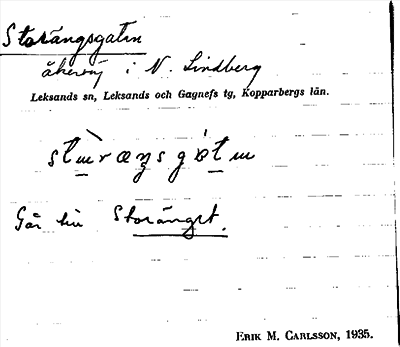 Storängsgatan
åkerväg i N. Lindberg
Leksands sn, Leksands och Gagnefs tg, Kopparbergs län.
Går till Storänget.
ERIK M. CARLSSON, 1935.